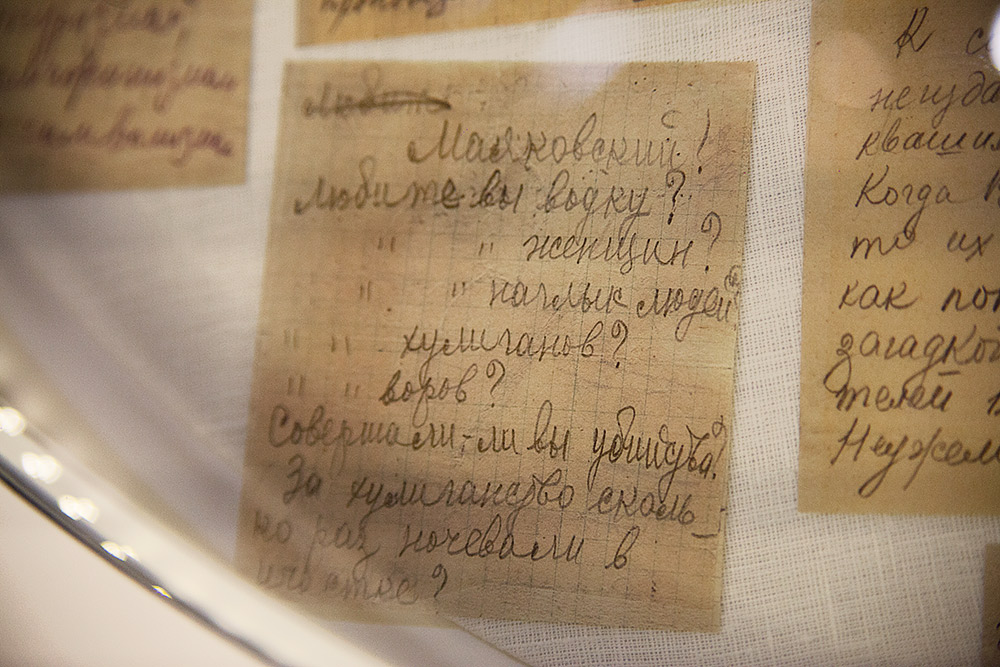 Любите
Маяковский!
Любите вы водку?
" " женщин?
" " наглык людей?
" " хулиганов?
" " воров?
Совершали-ли вы убийства?
За хулиганство сколь-
ко раз ночевали в
участке?
К с
неуда
кваши
Когда
те их
как по
загадко
телей
Неужел